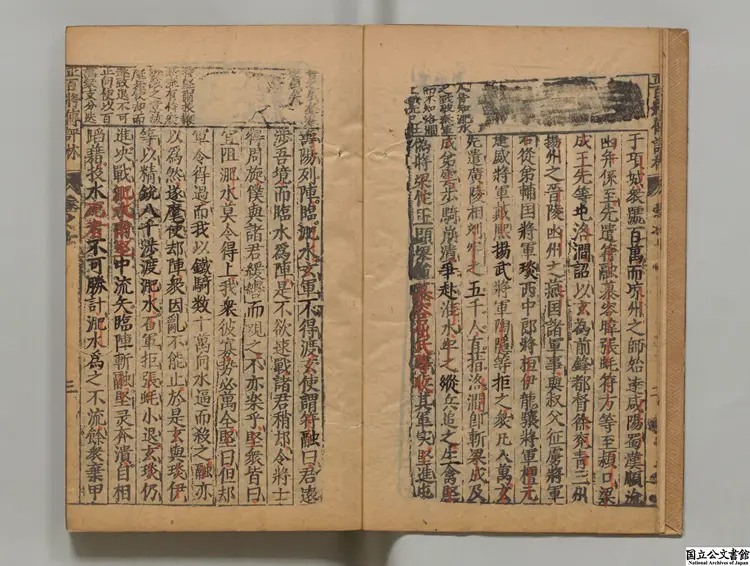 于項城衆號百萬而凉州之師始達咸陽蜀漢順流
幽并係至先遣符融慕容暐張蚝符方等至潁口梁
成王先等屯洛澗詔以玄為前鋒都督徐兖青三州
揚州之晉陵幽州之燕國諸軍事與叔父征虜將軍
石從弟輔国將軍琰西中郎將桓伊龍驤將軍檀玄
建威將軍戴熙揚武將軍陶隱等拒之衆凡八萬玄
先遣廣陵相劉牢之五千人直指洛澗即斬梁成及
成弟雲步騎崩潰爭赴淮水牢之縱兵追之生擒堅
偽將梁他王顯梁悌慕容屈氏等收其軍實堅進屯
壽陽列陣臨淝水玄軍不得渡玄使謂符融曰君遠
涉吾境而臨水為陣是不欲速戰諸君稍却令將士
得周旋僕與諸君緩轡而观之不亦樂乎堅衆皆曰
宜阻淝水莫令得上我衆彼寡勢必萬全堅曰但却
軍令得過而我以鐵騎數十萬向水逼而殺之融亦
以為然遂麾使却陣衆因亂不能止於是玄與琰伊
等以精銳八千涉渡淝水石軍拒張蚝小退玄琰仍
進决戰淝水南堅中流矢臨陣斬融堅衆奔潰自相
蹈藉投水死者不可勝計淝水為之不流餘衆棄甲
正百將傳評林
三
国立公文書館
National Archives of Japan